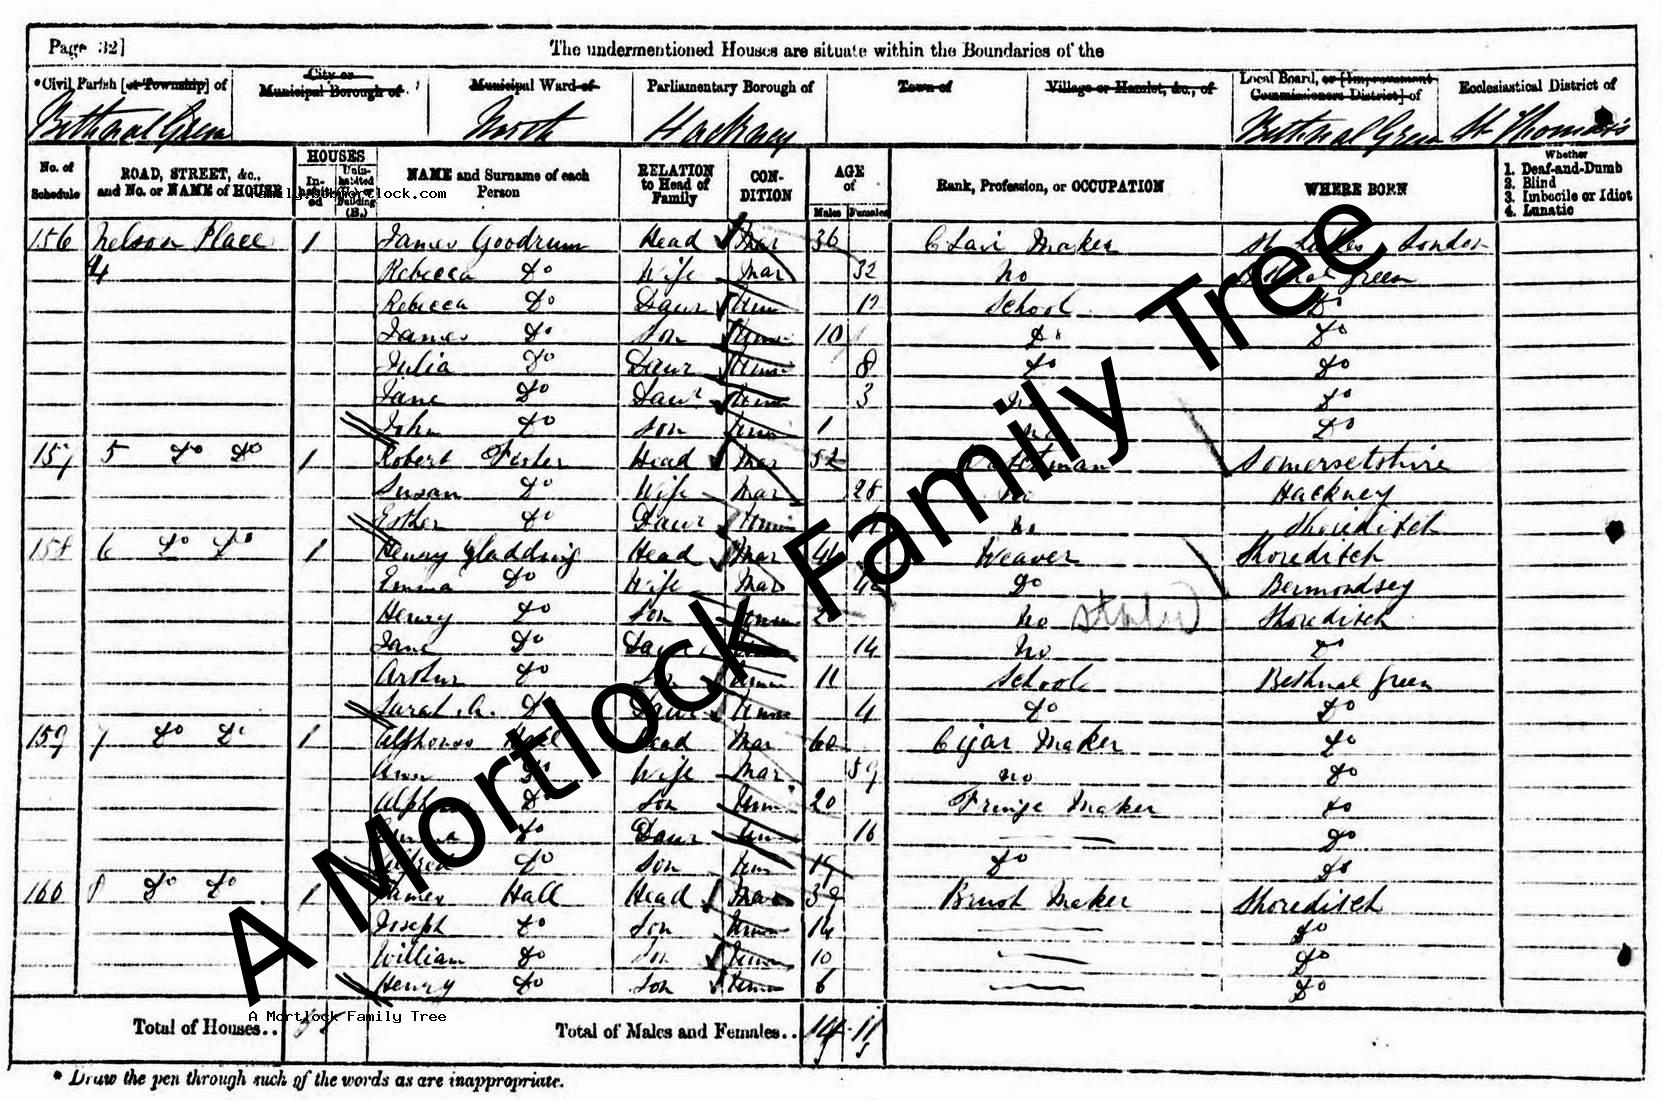 Page 32]
The undermentioned Houses are situate within the Boundaries of the
*Civil Parish [or Township] of
City or Municipal Borough of
Municipal Ward of
Parliamentary Borough of
Town of
Village or Hamlet, &c., of
Local Board, or [Improvement Commissioners District] of
Ecclesiastical District of
Bethnal Green North Hackney Bethnal Green St Thomas's
No. of Schedule
ROAD, STREET, &c., and No. or NAME of HOUSE
HOUSES
In-
ed
Unin-habited
Building (B.)
NAME and Surname of each Person
RELATION to Head of Family
CON-DITION
AGE of
Males Females
Rank, Profession, or OCCUPATION
WHERE BORN
Whether
1. Deaf-and-Dumb
2. Blind
3. Imbecile or Idiot
4. Lunatic
family.bobmortlock.com
156 Nelson Place 1 James Goodrum Head Mar 36 Chair Maker St Lukes London
4 Rebecca Do Wife Mar 32 No Bethnal Green
Rebecca Do Daur Unm School Do
James Do Son Unm 10 Do Do
Julia Do Daur Unm 8 Do Do
Jane Do Daur Unm 3 Do
John Do Son Unm 1 No Do
157 5 Do Do 1 Robert Head Mar 52 Somersetshire
Susan Do Wife Mar 28 No Hackney
Esther Do Daur Unm No Shoreditch
158 6 Do Do 1 Henry Gladding Head Mar 46 Weaver Shoreditch
Emma Do Wife Mar Do Bermondsey
Henry Do Son Unm No Shoreditch
Jane Do Daur 14 No Do
Arthur Do Son Unm 11 School Bethnal Green
Sarah A. Do Daur Unm 4 Do Do
159 7 Do Do 1 Alphonso Head Mar 60 Cigar Maker Do
Ann Do Wife Mar 59 No Do
Do Son Unm 20 Fringe Maker Do
Emma Do Daur Unm 16 Do
Alfred Do Son Unm Do Do
160 8 Do Do 1 James Hall Head Mar 39 Brush Maker Shoreditch
Joseph Do Son Unm 14 Do
William Do Son Unm 10 Do
Henry Do Son Unm 6 Do
A Mortlock Family Tree
A Mortlock Family Tree
Total of Houses.. 5
Total of Males and Females.. 14 11
* Draw the pen through such of the words as are inappropriate.